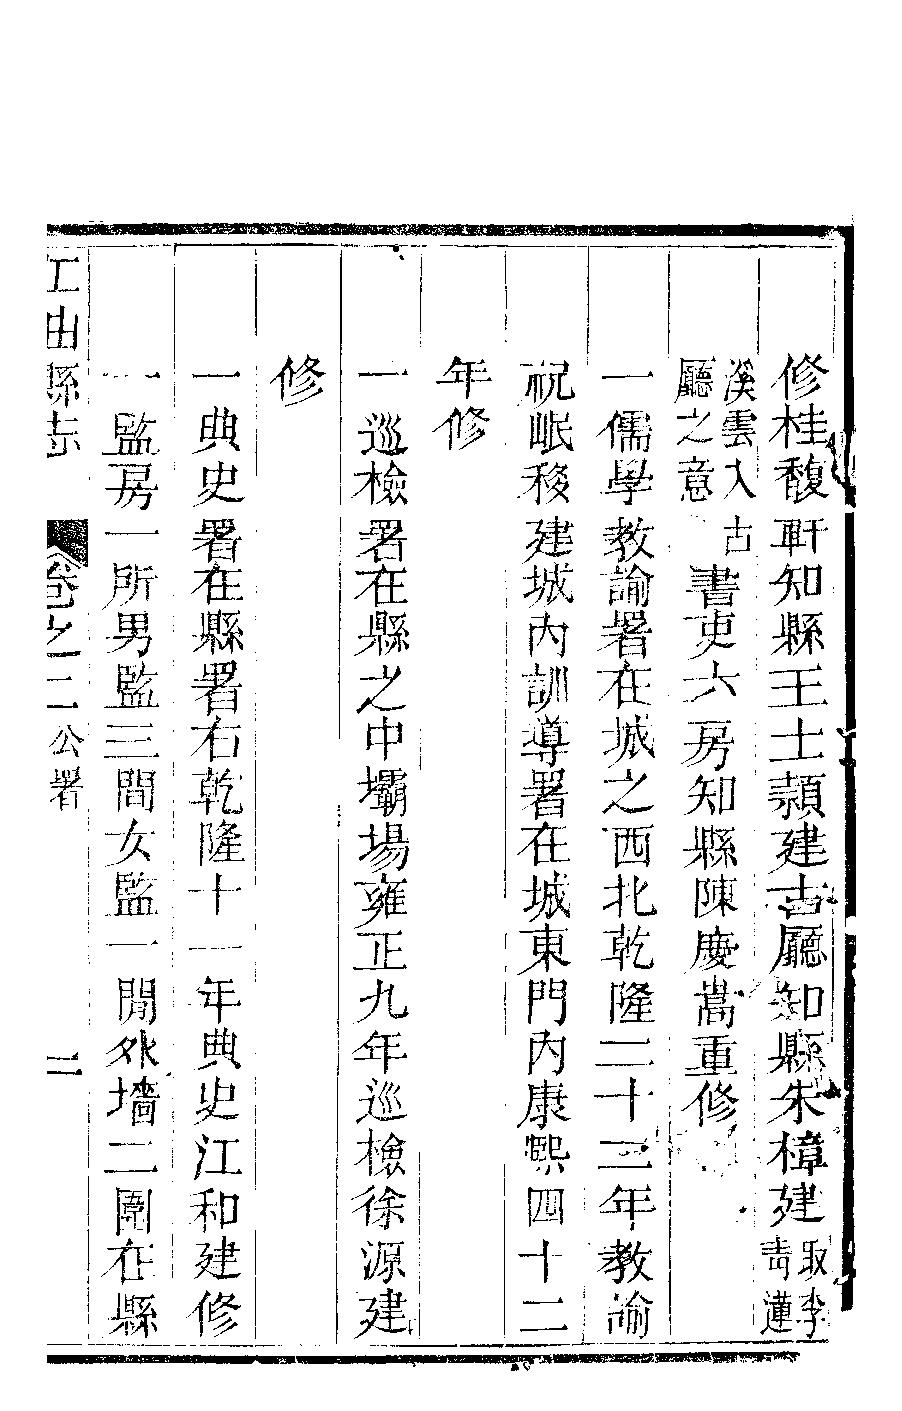 修桂馥軒知縣王士熲建古廳知縣朱樟建取李青蓮
溪雲入古廳之意書吏六房知縣陳慶嵩重修
一儒學教諭署在城之西北乾隆二十三年教諭
祝岷移建城內訓導署在城東門內康熙四十二
年修
一巡檢署在縣之中壩場雍正九年巡檢徐源建
修
一典史署在縣署右乾隆十一年典史江和建修
一監房一所男監三間女監一間外墻二圍在縣
江油縣志 卷之二 公署 二